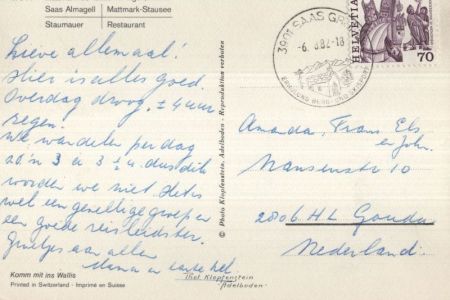 Saas Almagell | Mattmark-Stausee
Staumauer | Restaurant
Lieve allemaal!
Hier is alles goed.
Overdag droog, ± 4 uur
regen.
We wandelen per dag
zo'n 3 a 3½ u. dus dik
worden we niet. Het is
wel een gezellige groep en
een goede reisleidster.
Groetjes aan allen
Komm mit ins Wallis
Printed in Switzerland · Imprimé en Suisse
© Photo Klopfenstein, Adelboden - Reproduktion verboten
3901 SAAS GR
-6. 8.82-18
HELVETIA
70
Amanda, Frans, Els
en John.
Nansenstr 10
2806 HL Gouda
Nederland.
Thol Klopfenstein
Adelboden